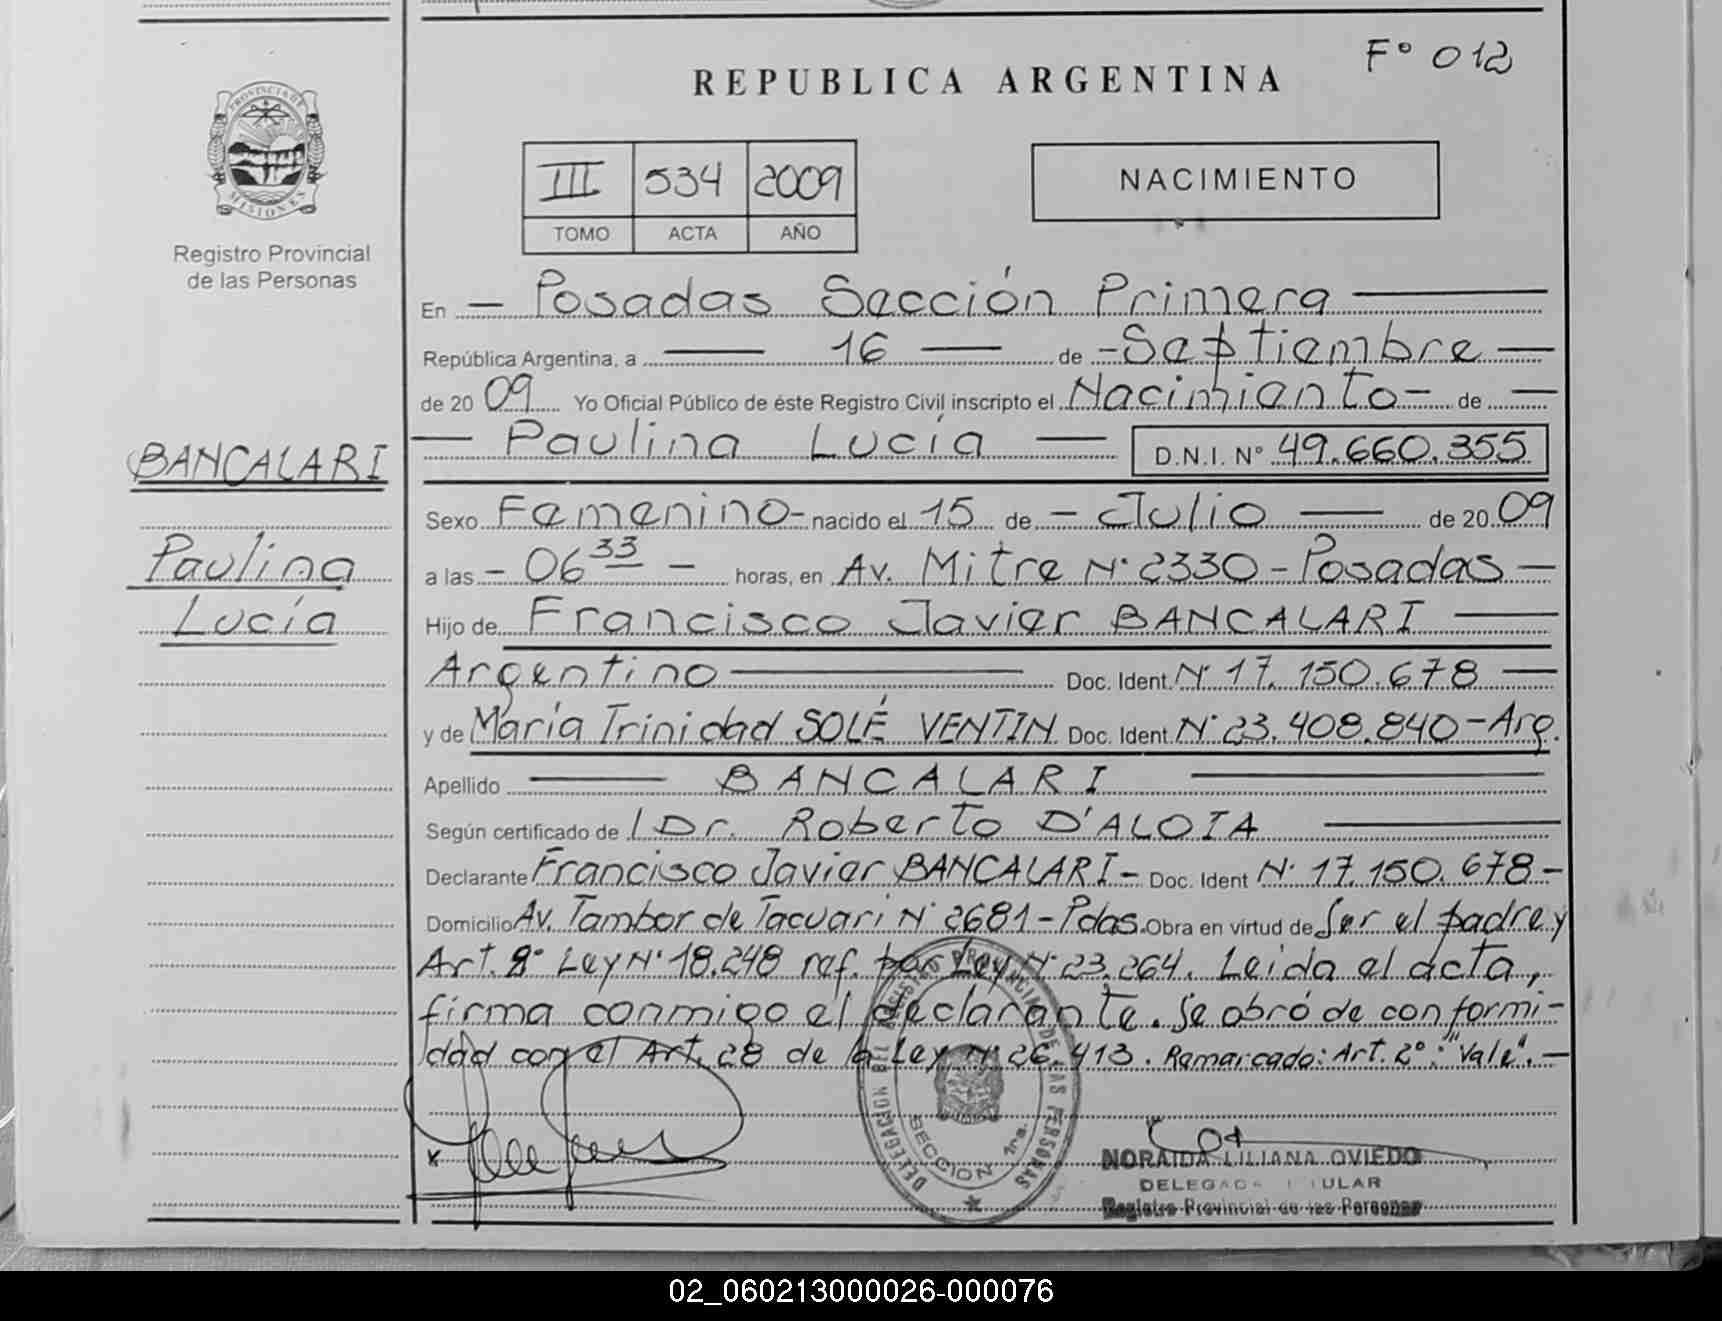 F° 012
REPUBLICA ARGENTINA
PROVINCIA DE MISIONES
Registro Provincial
de las Personas
III 534 2009
TOMO ACTA AÑO
NACIMIENTO
En — Posadas Sección Primera —
República Argentina, a — 16 — de - Septiembre —
de 20 09 Yo Oficial Público de éste Registro Civil inscripto el Nacimiento - de —
— Paulina Lucía — D.N.I. N° 49.660.355
BANCALARI
Paulina
Lucía
Sexo Femenino - nacido el 15 de - Julio — de 20 09
a las - 06 33 - horas, en Av. Mitre N° 2330 - Posadas —
Hijo de Francisco Javier BANCALARI —
Argentino — Doc. Ident. N° 17.150.678 —
y de María Trinidad SOLÉ VENTIN Doc. Ident. N° 23.408.840 - Arg.
Apellido — BANCALARI —
Según certificado de l Dr. Roberto D'ALOIA —
Declarante Francisco Javier BANCALARI - Doc. Ident N° 17.150.678 -
Domicilio Av. Tambor de Tacuari N° 2681 - Pdas. Obra en virtud de Ser el padre y
Art. 2° Ley N° 18.248 ref. por Ley N° 23.264. Leida el acta,
firma conmigo el declarante. Se obró de conformi-
dad con el Art. 28 de la Ley N° 26.413. Remarcado: Art. 2°: "Vale". —
DELEGACION DEL REGISTRO PROVINCIAL DE LAS PERSONAS
SECCION 1ra.
x
NORAIDA LILIANA OVIEDO
DELEGADA TITULAR
Registro Provincial de las Personas
02_060213000026-000076